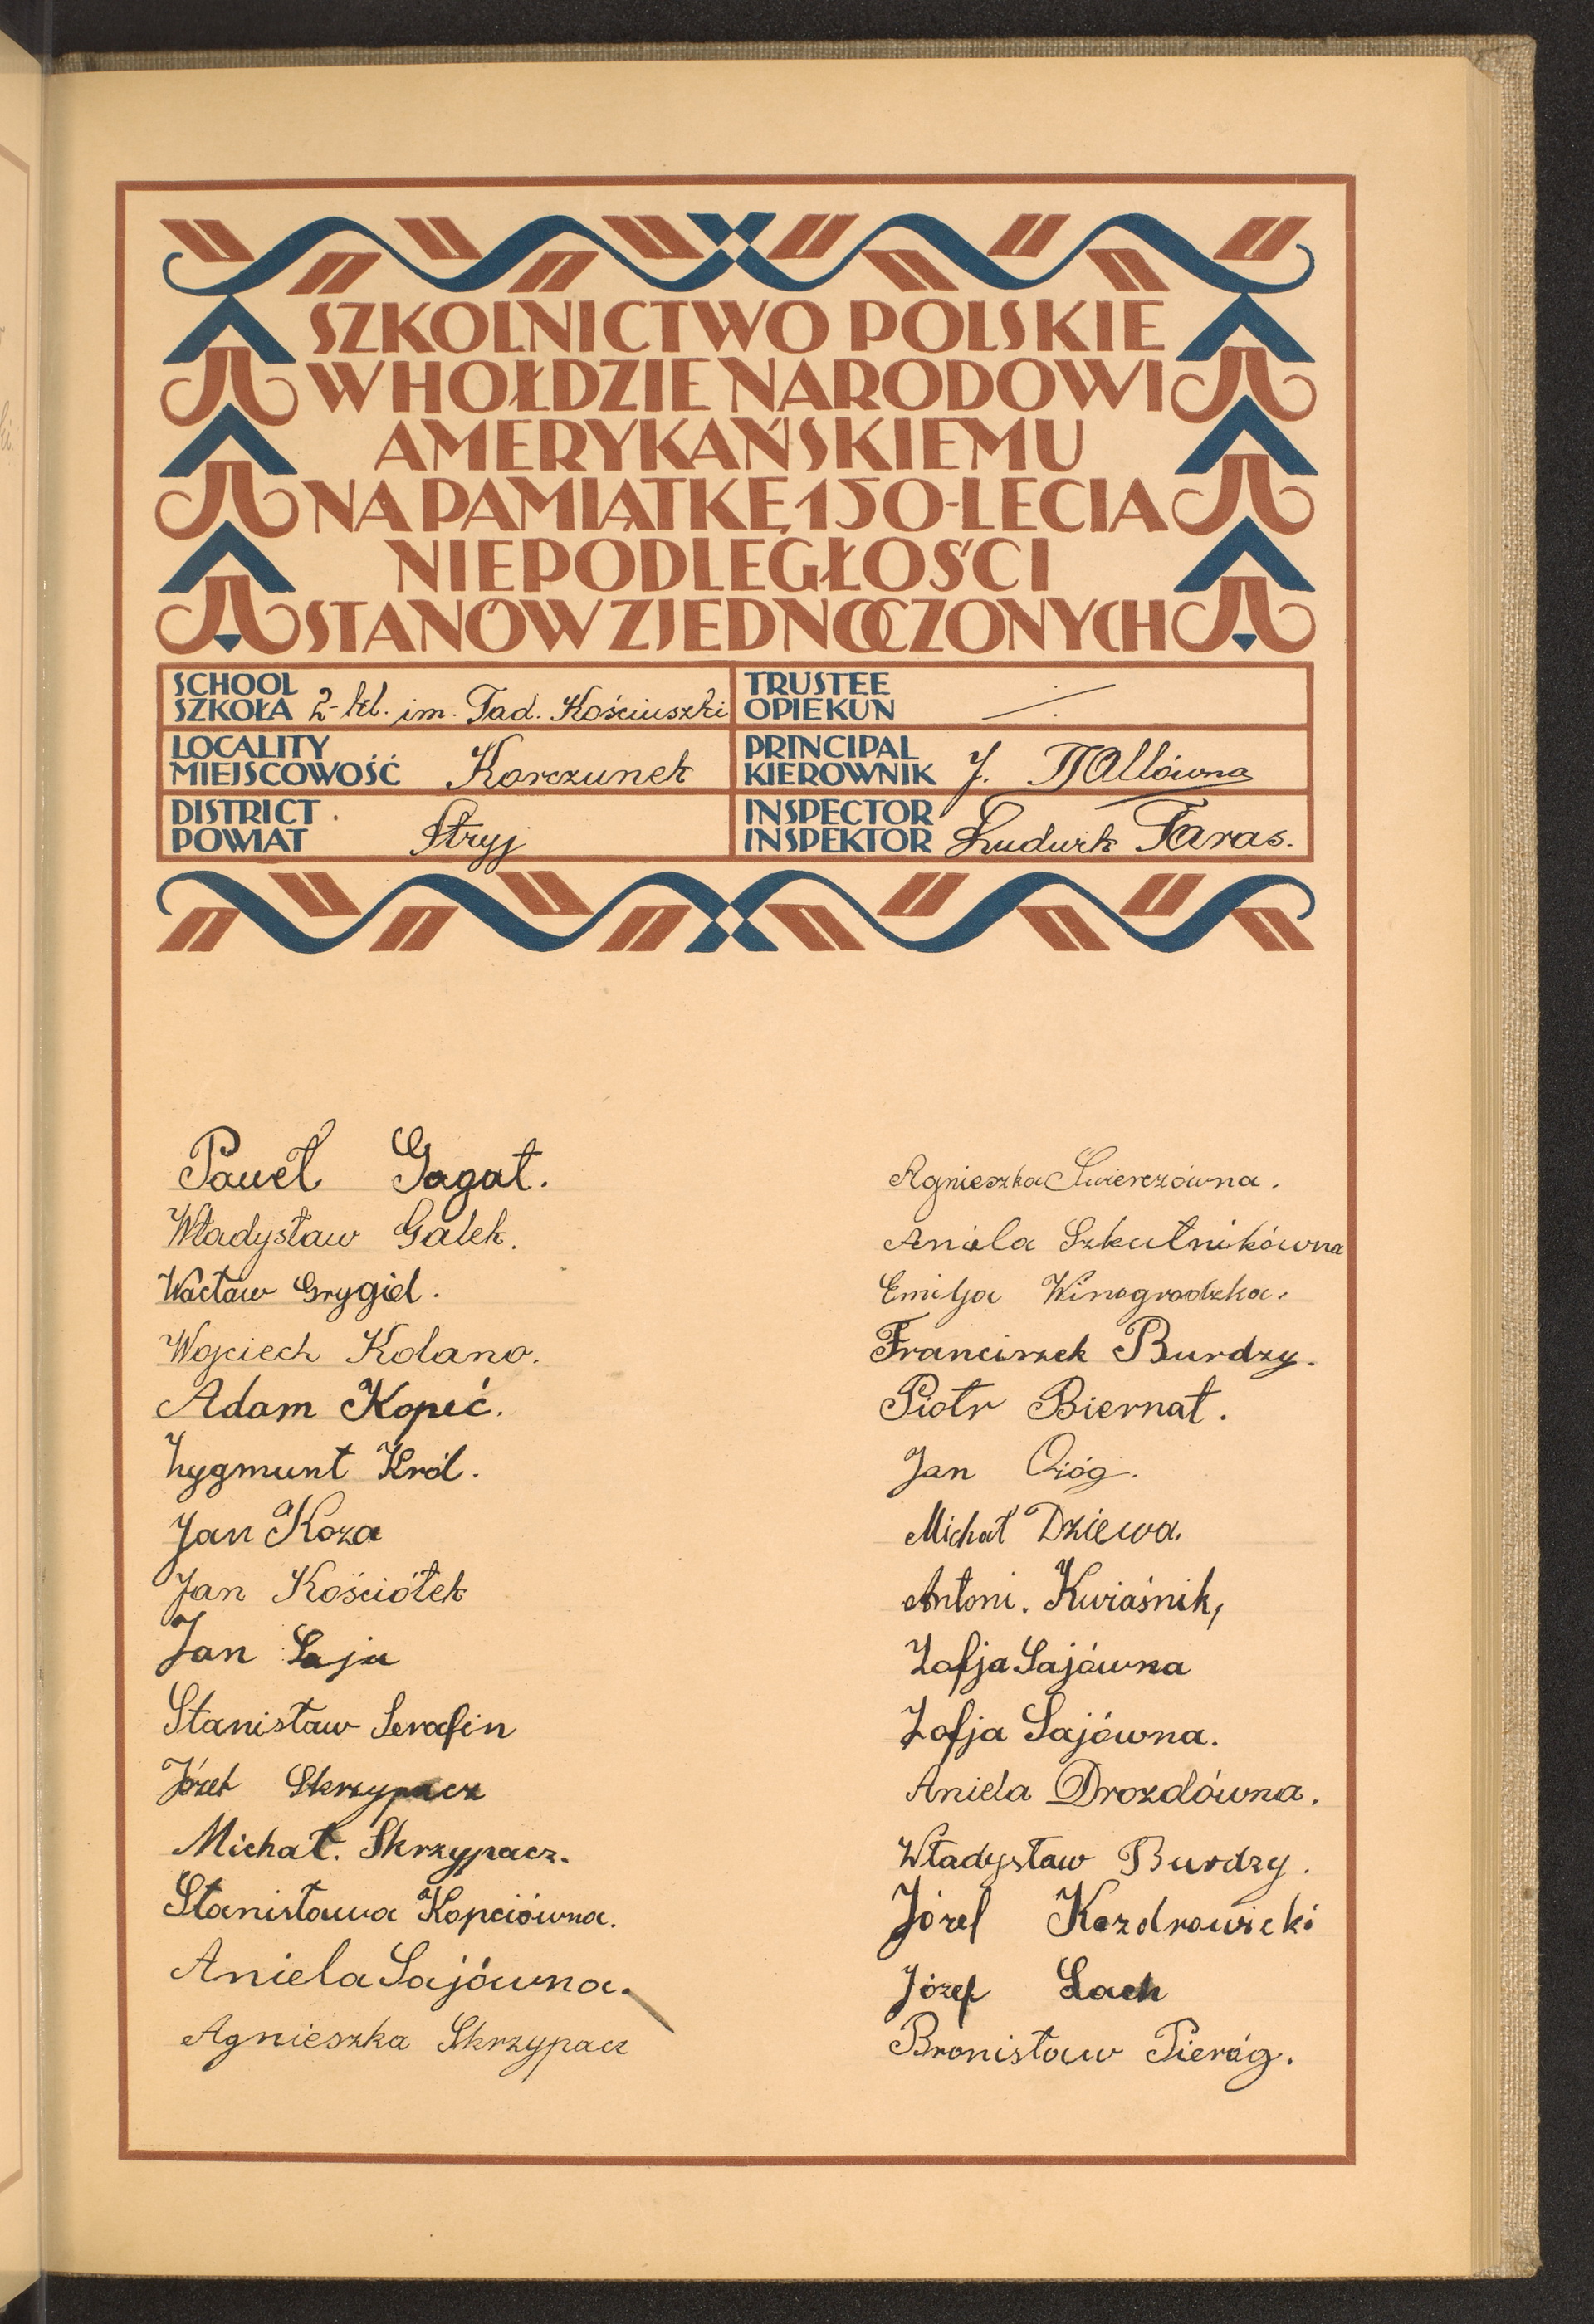 SZKOLNICTWO POLSKIE
W HOŁDZIE NARODOWI
AMERYKAŃSKIEMU
NA PAMIĄTKĘ 150-LECIA
NIEPODLEGŁOŚCI
STANÓW ZJEDNOCZONYCH
SCHOOL
SZKOŁA 2-kl. im. Tad. Kościuszki
TRUSTEE
OPIEKUN
LOCALITY
MIEJSCOWOŚĆ Korczunek
PRINCIPAL
KIEROWNIK J.
DISTRICT
POWIAT Stryj
INSPECTOR
INSPEKTOR Ludwik Taras.
Paweł Gagat.
Władysław Gałek.
Wacław Grygiel.
Wojciech Kolano.
Adam Kopeć.
Zygmunt Król.
Jan Koza
Jan Kościółek
Jan Saja
Stanisław Serafin
Józef Skrzypacz
Michał. Skrzypacz.
Stanisława Kopciówna.
Aniela Sajówna.
Agnieszka Skrzypacz
Agnieszka Świerczówna.
Aniela Szkutnikówna
Emilja Winogrodzka.
Franciszek Burdzy.
Piotr Biernat.
Jan Ożóg.
Michał Dziewa.
Antoni. Kwiaśnik,
Zofja Sajówna
Zofja Sajówna.
Aniela Drozdówna.
Władysław Burdzy.
Józef Kozdrowicki
Józef Lach
Bronisław Pieróg.